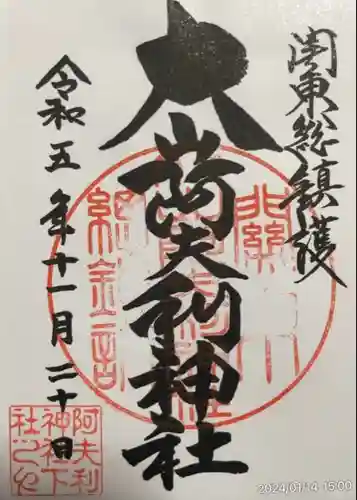 関東総鎮護
大山阿夫利神社
令和五年十一月二十日
阿夫利
神社下
社之印
2024/01/14 15:09